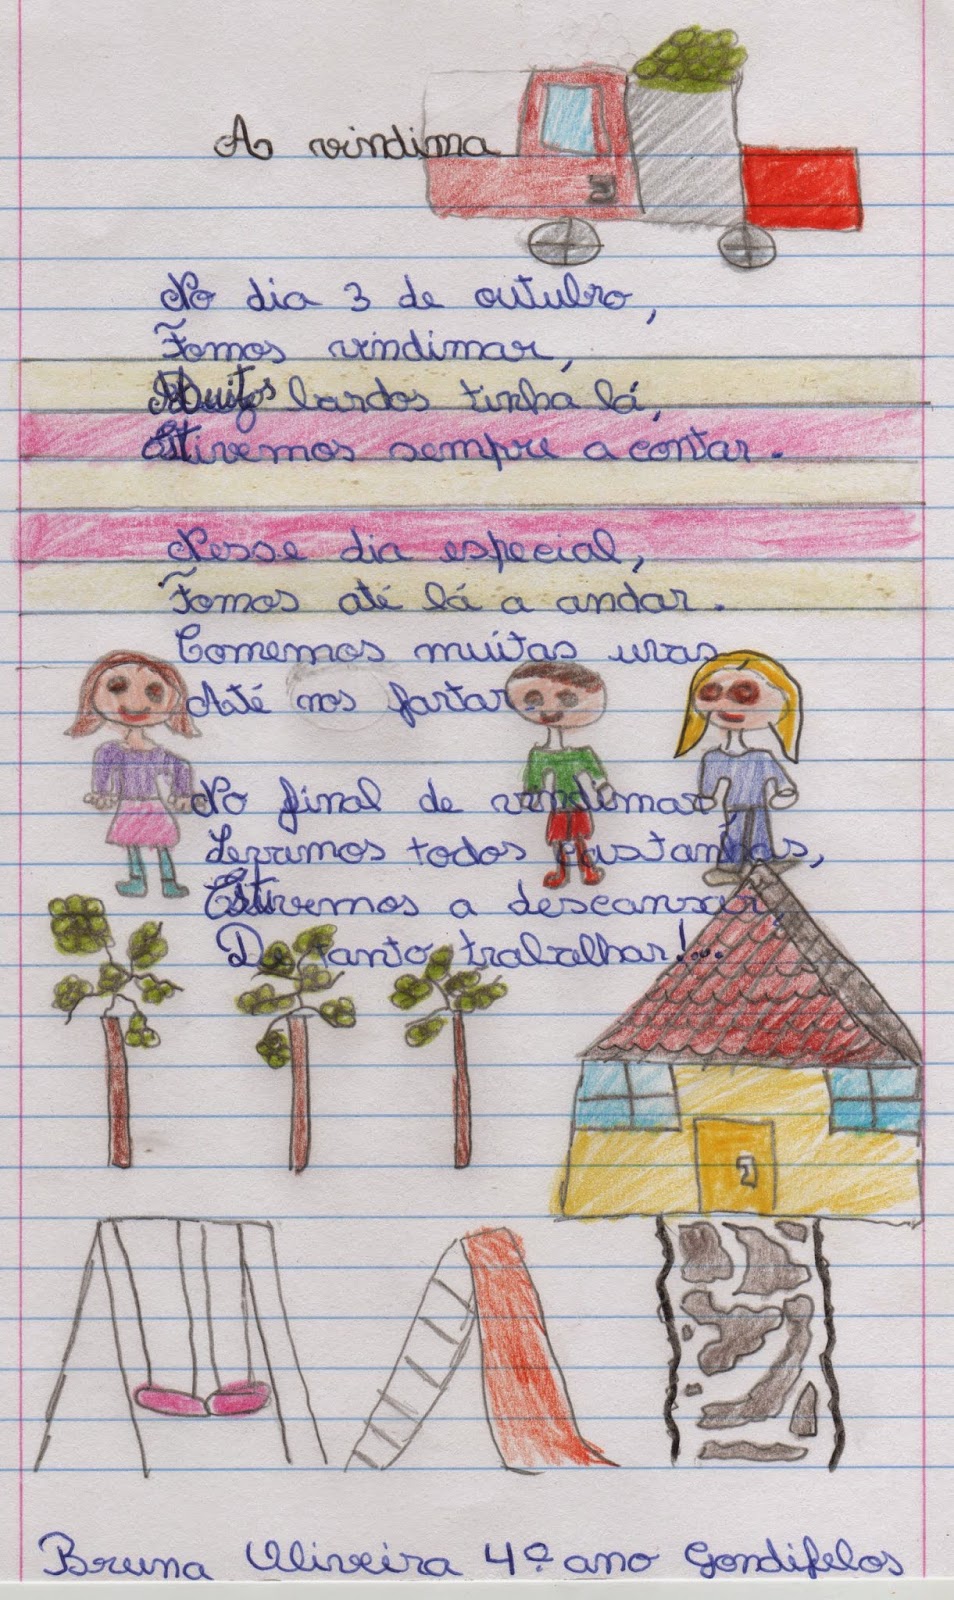 A vindima
No dia 3 de outubro,
Fomos vindimar,
Muitos bardos tinha lá,
Estivemos sempre a contar.
Nesse dia especial,
Fomos até lá a andar.
Comemos muitas uvas
Até nos fartar.
No final de vindimar,
Levamos todos castanhas,
Estivemos a descansar,
De tanto trabalhar!...
Bruna Oliveira 4º ano Gondifelos